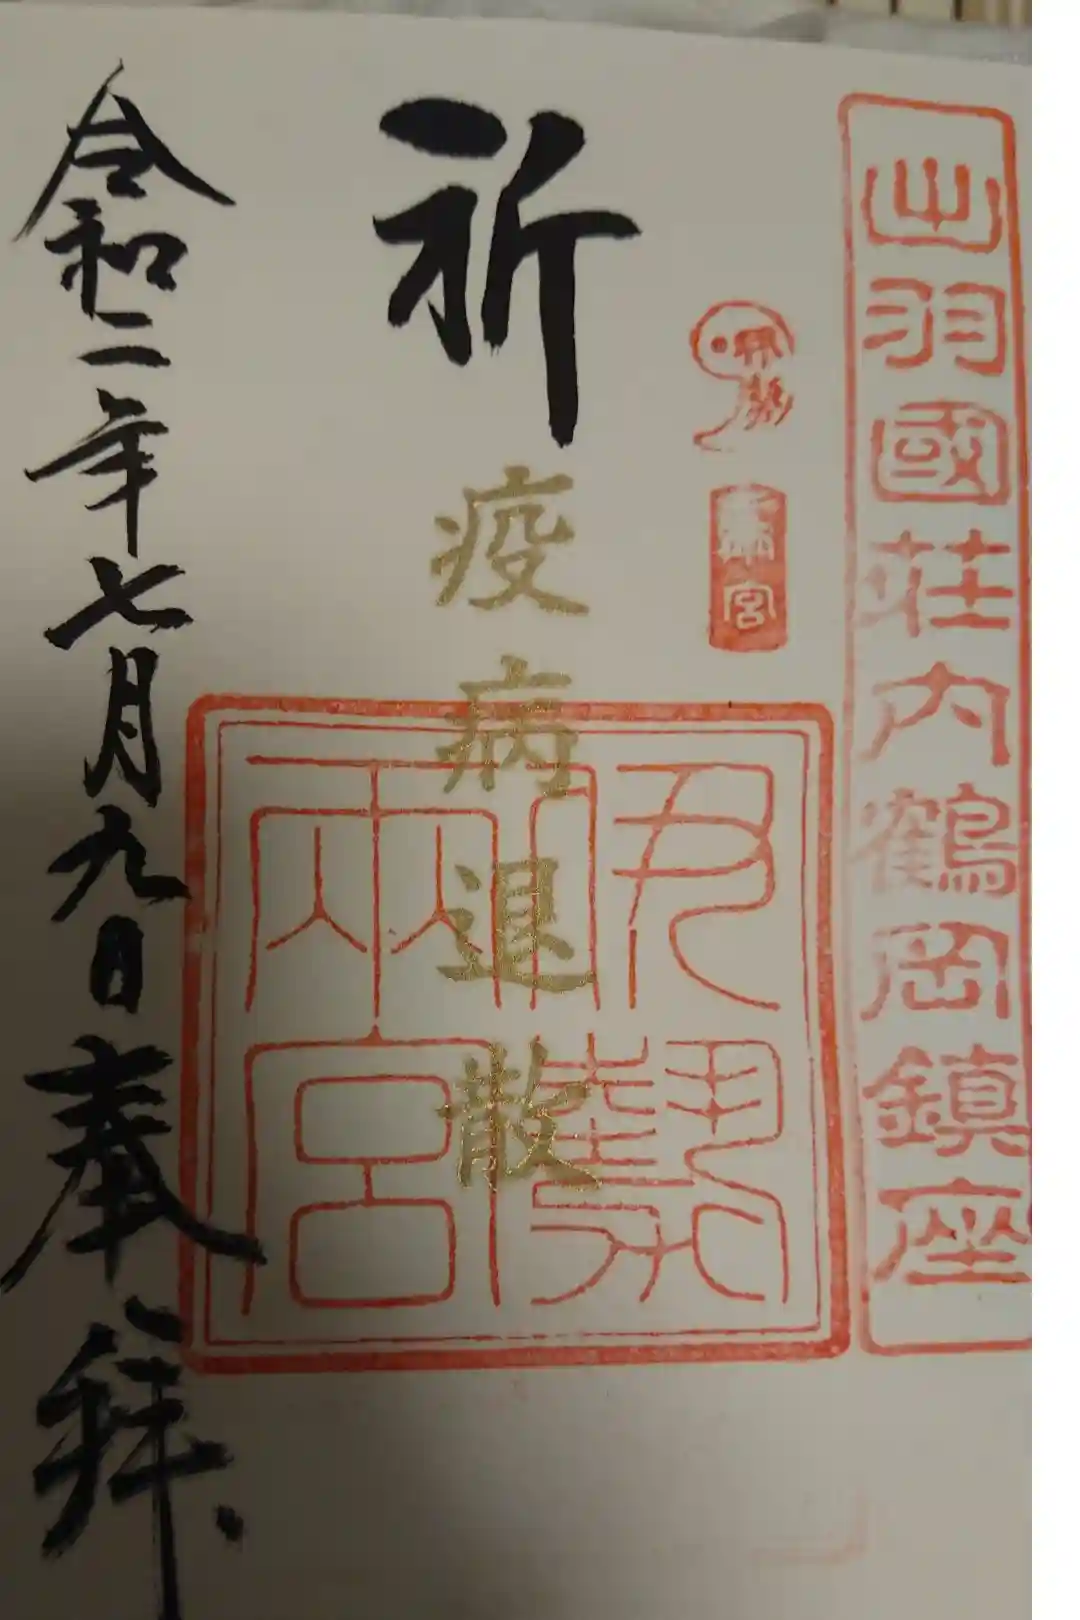 出羽國荘内鶴岡鎮座
伊勢
両宮
祈
疫病退散
伊勢
両宮
令和二年七月九日奉拜